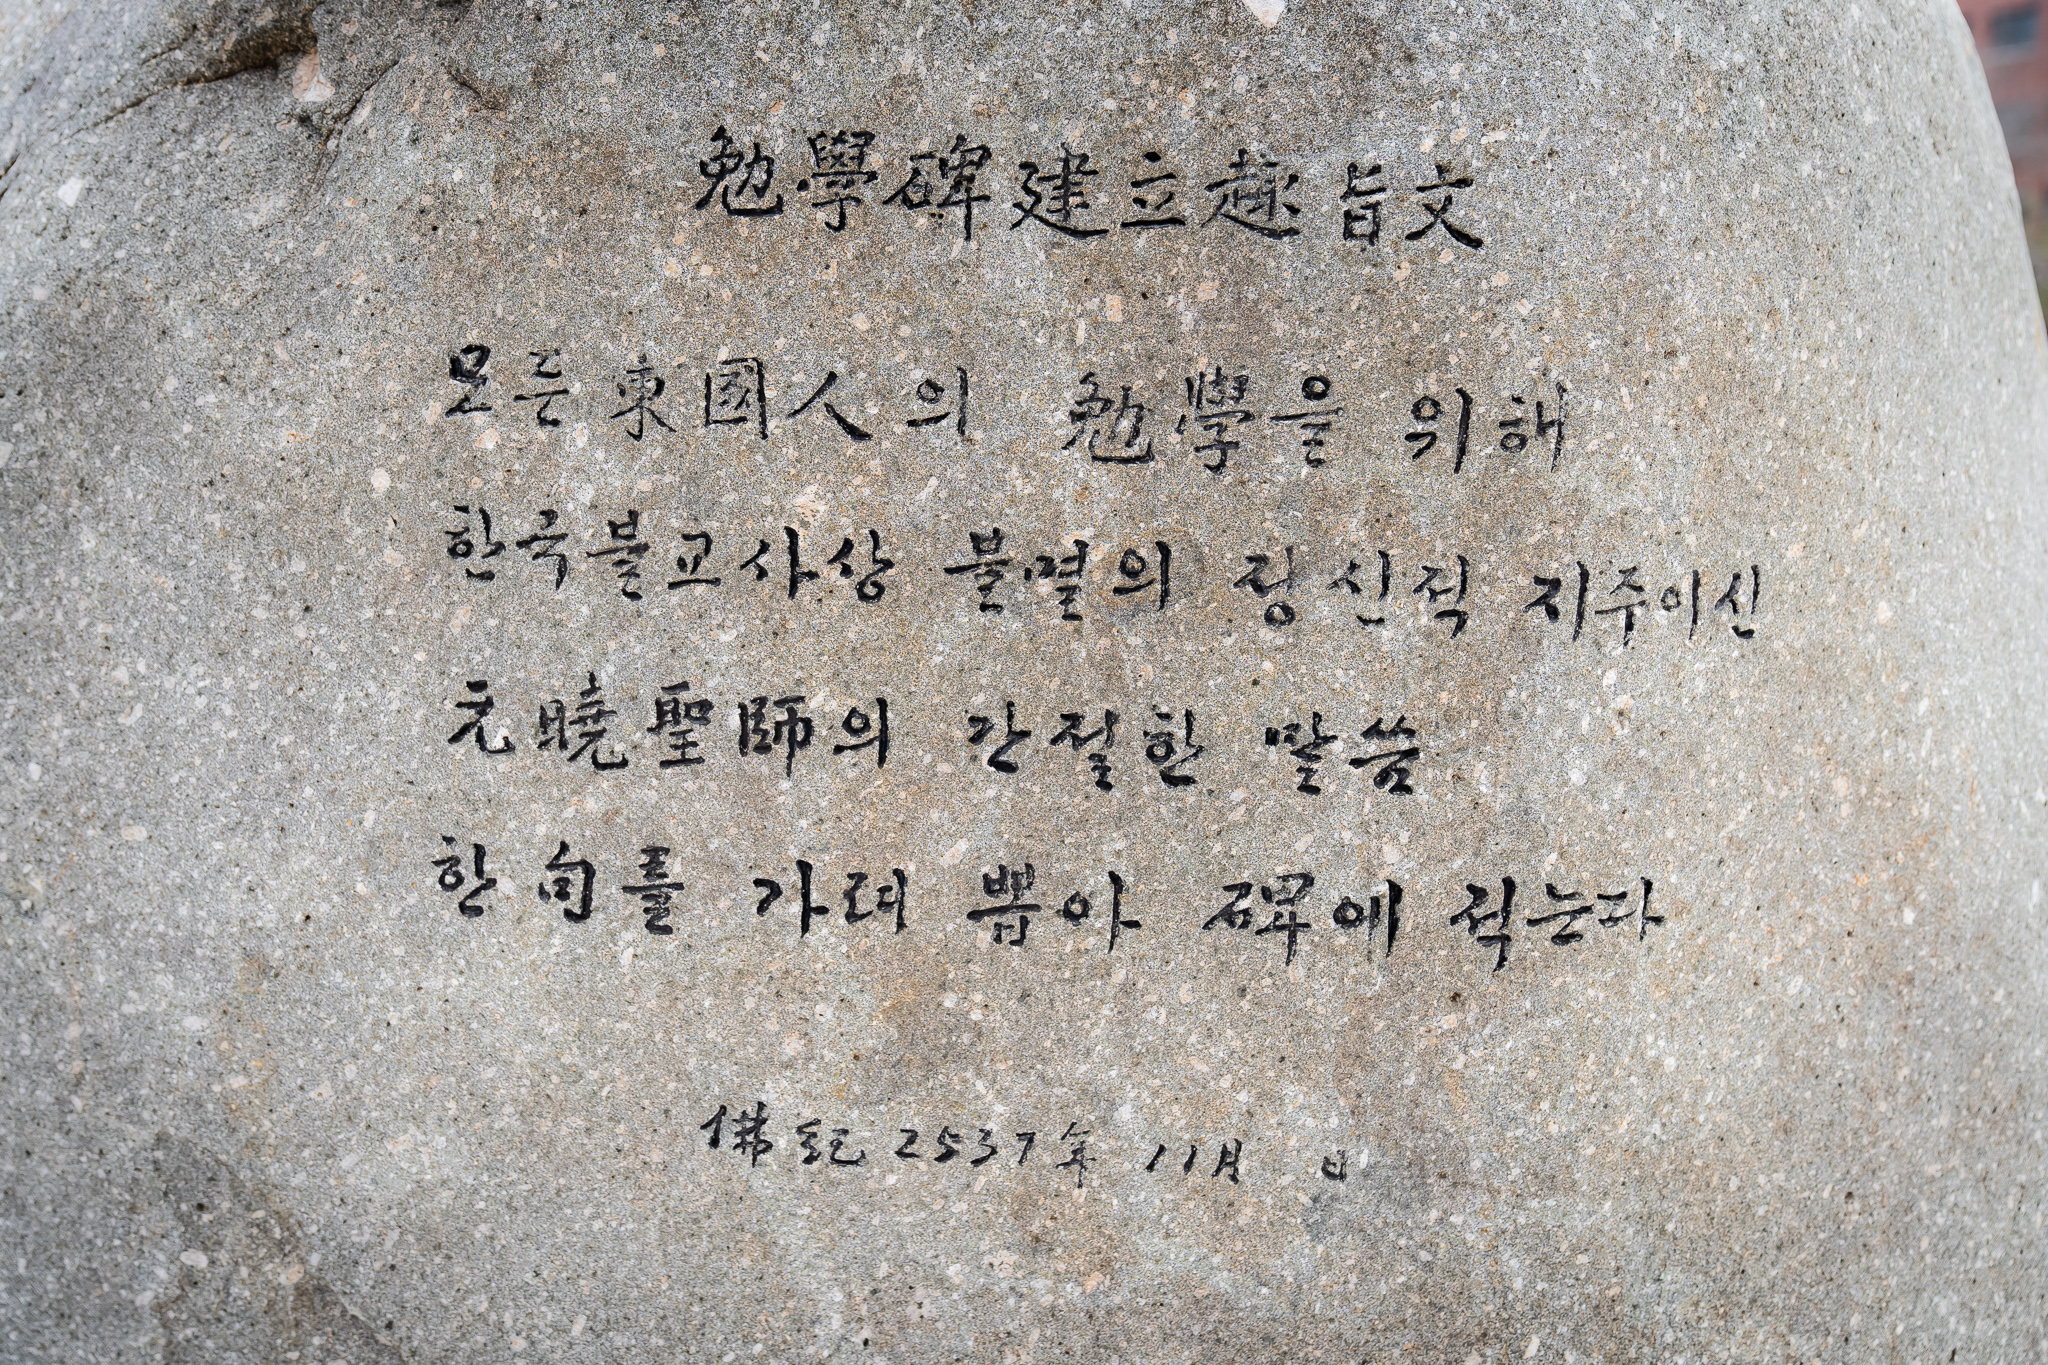 勉學碑建立趣旨文
모든 東國人의 勉學을 위해
한국불교사상 불멸의 정신적 지주이신
元曉聖師의 간절한 말씀
한 句를 가려 뽑아 碑에 적는다
佛紀 2537年 11月 日